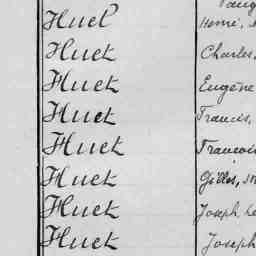 Huel Henri,
Huet Charles,
Huet Eugène
Huet Francis,
Huet Francois
Huet Gilles,
Huet Joseph,
Huet Joseph